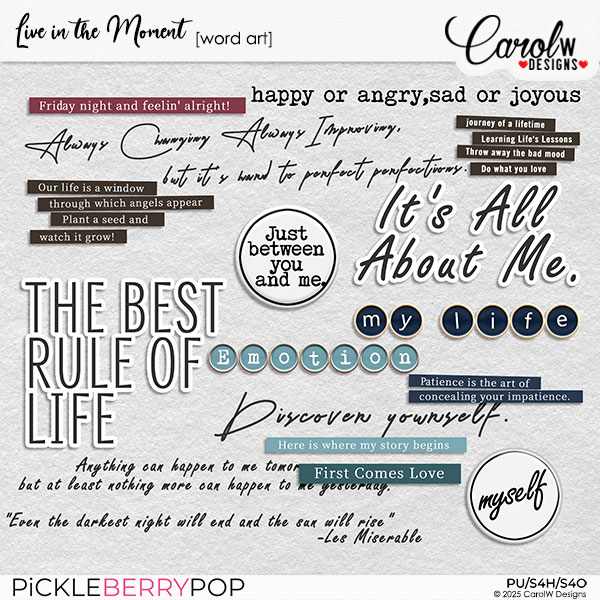 Live in the Moment [word art]
CarolW
DESIGNS
Friday night and feelin' alright!
happy or angry,sad or joyous
Always Changing Always Improving,
but it's hard to perfect perfections.
journey of a lifetime
Learning Life's Lessons
Throw away the bad mood
Do what you love
Our life is a window
through which angels appear
Plant a seed and
watch it grow!
Just
between
you
and me.
It's All
About Me.
THE BEST
RULE OF
LIFE
my life
Emotion
Patience is the art of
concealing your impatience.
Discover yourself.
Here is where my story begins
First Comes Love
Anything can happen to me tomor
but at least nothing more can happen to me yesterday.
myself
"Even the darkest night will end and the sun will rise"
-Les Miserable
PiCKLEBERRYPOP
PU/S4H/S4O
© 2025 CarolW Designs